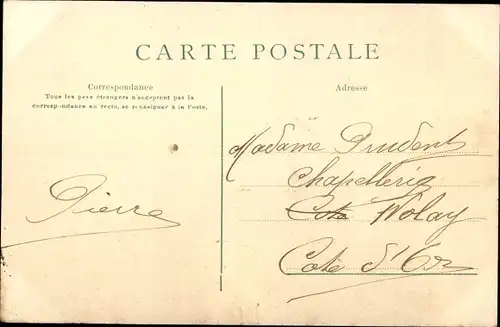 CARTE POSTALE
Correspondance
Tous les pays étrangers n'acceptent pas la
correspondance au recto, se renseigner à la Poste.
Pierre
Adresse
Madame Prudent
Chapellerie
Cote Nolay
Cote d'Or